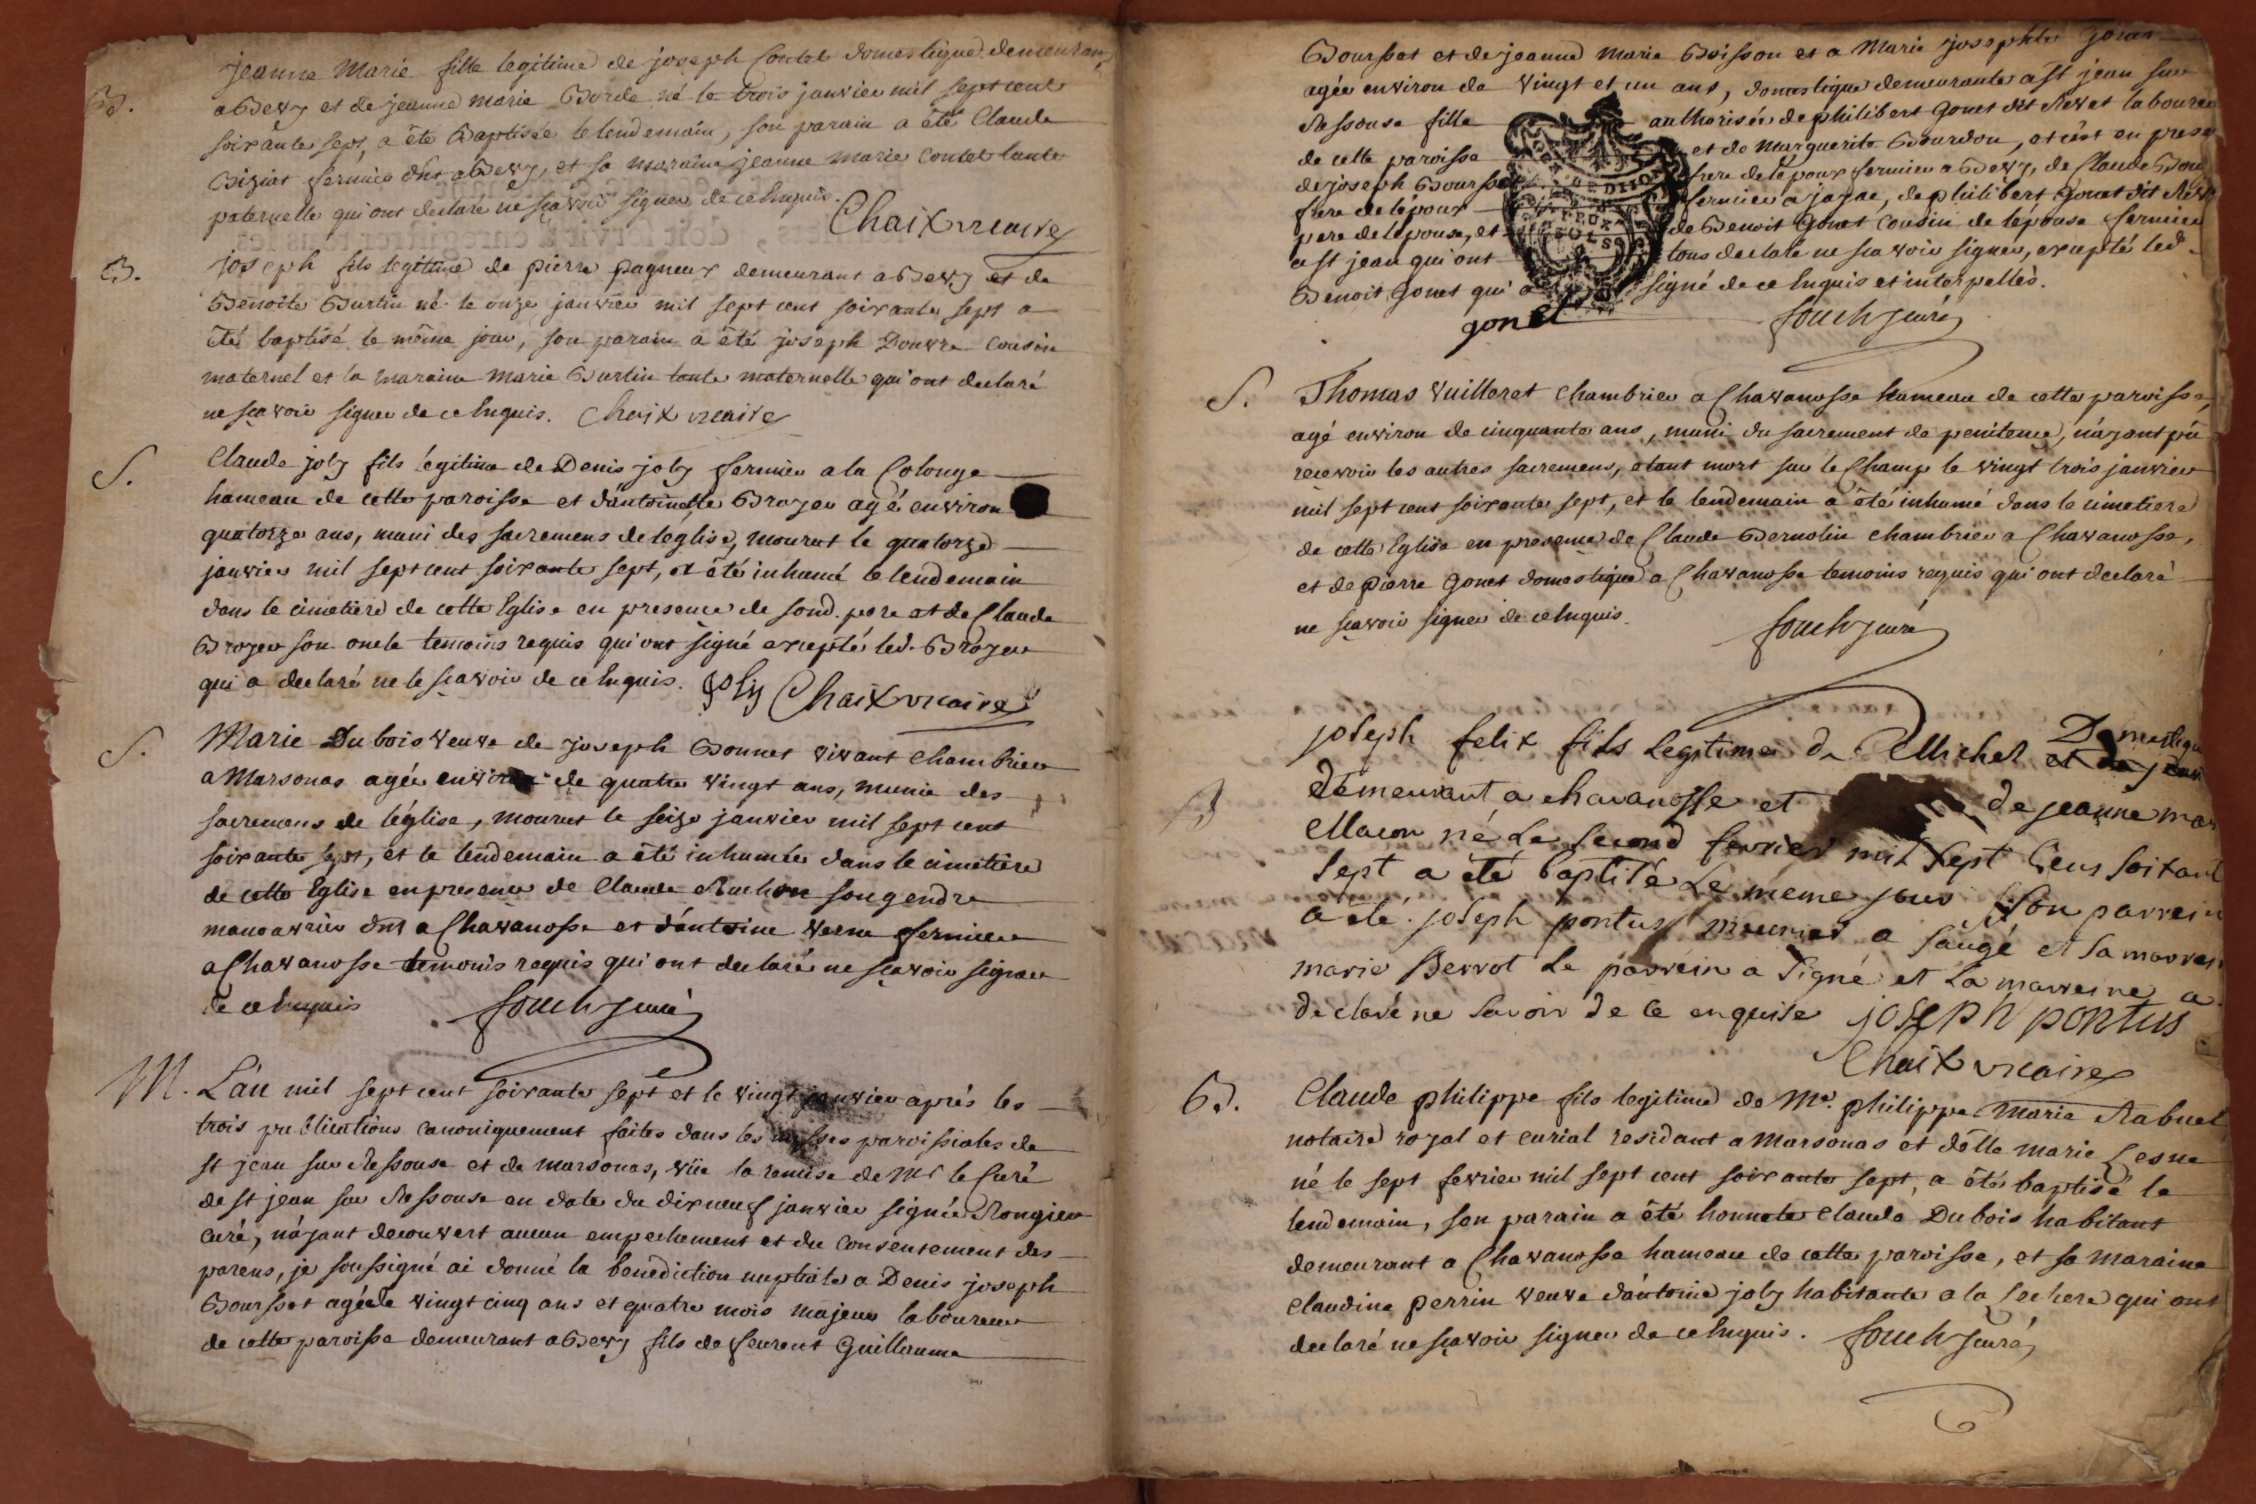 B.
jeanne Marie fille legitime de joseph Contet domestique demeurant
a Bevy et de jeanne marie Borde né le trois janvier mil sept cent
soixante sept, a été Baptisée le lendemain, son parain a été Claude
Biziat fermier dud a Bevy, et sa maraine jeanne marie contet tante
paternelle qui ont declaré ne sçavoir signer de ce Enquis.
Chaix vicaire
B.
joseph fils legitime de pierre pagneux demeurant a Bevy et de
Benoite Burtin né le onze janvier mil sept cent soixante sept a
été baptisé le même jour, son parain a été joseph Douvre cousin
maternel et la maraine Marie Burtin tante maternelle qui ont declaré
ne sçavoir signer de ce Enquis. Chaix vicaire
S.
Claude joly fils legitime de Denis joly fermier a la Colonge
hameau de cette paroisse et d'antoinette Broyer agé environ
quatorze ans, muni des sacremens de l'église, mourut le quatorze
janvier mil sept cent soixante sept, et été inhumé le lendemain
dans le cimetiere de cette Eglise en presence de sond. pere et de Claude
Broyer son oncle temoins requis qui ont signé excepté led. Broyer
qui a declaré ne le sçavoir de ce Enquis. joly Chaix vicaire
S.
Marie Dubois veuve de joseph Bonnet vivant chambrier
a Marsonas agée environ de quatre vingt ans, munie des
sacremens de l'église, mourut le seize janvier mil sept cent
soixante sept, et le lendemain a été inhumée dans le cimetiere
de cette Eglise en presence de Claude Ruchon son gendre
manoavrier dmt a Chavanosse et d'antoine verne fermier
a Chavanosse temoins requis qui ont declaré ne sçavoir signer
de ce Enquis fouch curé
M.
L'an mil sept cent soixante sept et le vingt janvier aprés les
trois publications canoniquement faites dans les messes paroissiales de
st jean sur Ressouse et de marsonas, vüe la remise de Mr le Curé
de st jean sur Ressouse en date du dix neuf janvier signée Rongier
curé, n'ayant decouvert aucun empechement et du consentement des
parens, je soussigné ai donné la benediction nuptiale a Denis joseph
Boursset agé de vingt cinq ans et quatre mois majeur laboureur
de cette paroisse demeurant a Bevy fils de feurent Guillaume
Boursset et de jeanne Marie Boisson et a Marie josephte Gonet
agée environ de vingt et un ans, domestique demeurante a st jean sur
Ressouse fille authorisée de philibert gonet dit Revet laboureur
de cette paroisse et de Marguerite Bourdon, et c'est en presence
de joseph Boursset frere de l'époux fermier a Bevy, de Claude Bour
frere de l'époux fermier a jayac, de philibert gonet dit Rev
pere de l'épouse, et de Benoit gonet cousin de l'épouse fermier
a st jean qui ont tous declaré ne sçavoir signer, excepté led.
Benoit gonet qui a signé de ce Enquis et interpellés.
gonet fouch curé
S.
Thomas vuilleret chambrier a Chavanosse hameau de cette paroisse,
agé environ de cinquante ans, muni du sacrement de penitence, n'ayant pû
recevoir les autres sacremens, etant mort sur le Champ le vingt trois janvier
mil sept cent soixante sept, et le lendemain a été inhumé dans le cimetiere
de cette Eglise en presence de Claude Bernolin chambrier a Chavanosse,
et de pierre gonet domestique a Chavanosse temoins requis qui ont declaré
ne sçavoir signer de ce Enquis.
fouch curé
B
joseph felix fils legitime de Michel et de jean Domestique
demeurant a chavanosse et de jeanne mar
Macon né le second fevrier mil sept cens soixant
sept a été baptisé le meme jour son parrein
a eté joseph pontus meunier a saugé et sa marrei
marie Berrot le parrein a signé et la marreine a
declaré ne savoir de ce enquise joseph pontus
Chaix vicaire
B.
Claude philippe fils legitime de Me. philippe Marie Rabuel
notaire royal et curial residant a Marsonas et délle marie Lesne
né le sept fevrier mil sept cent soixante sept, a été baptisé le
lendemain, son parain a été honnete claude Dubois habitant
demeurant a Chavanosse hameau de cette paroisse, et sa maraine
claudine perrin veuve d'antoine joly habitante a la Lechere qui ont
declaré ne sçavoir signer de ce Enquis. fouch curé